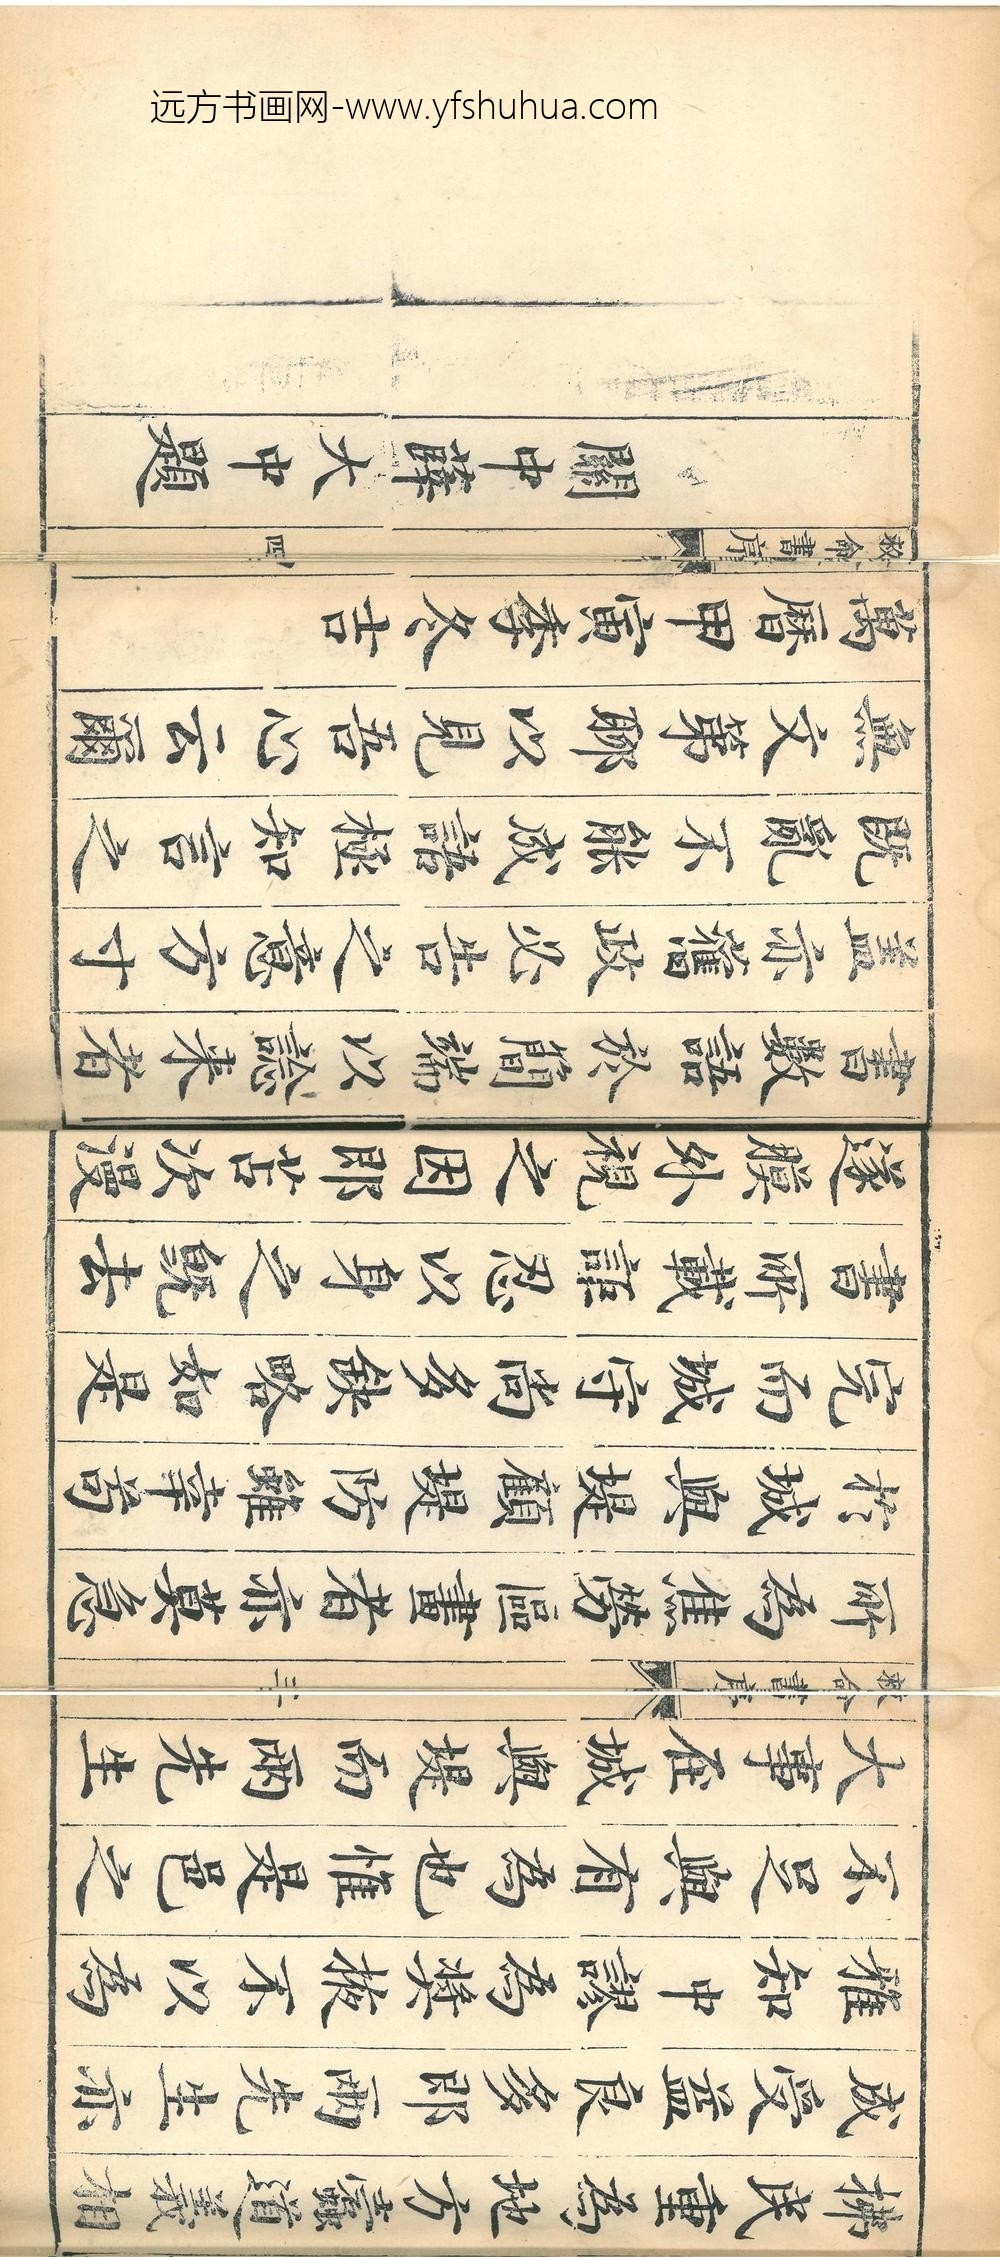 远方书画网-www.yfshuhua.com
拂民重為地方蠹道義相
成受益良多即兩先生亦
雅知中謬為獎掖不以為
不足與有為也惟是邑之
大事在城與堤而兩先生
救命書序 三
所為焦勞區畫者亦莫急
於城與堤顧堤防雖幸苟
完而城守尚多缺略如是
書所載詎忍以身之既去
遂膜外視之因即苫次漫
書數語於簡端以諗来者
盖亦舊政必告之意方寸
既亂不能成語極知言之
無文第聊以見吾心云爾
萬曆甲寅季冬吉
救命書序 四
關中薛大中題